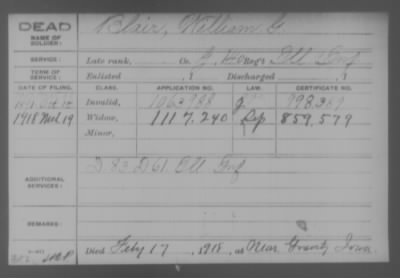 DEAD
NAME OF SOLDIER: Blair, William G.
SERVICE: Late rank, Co. Reg't Ill Inf
TERM OF SERVICE: Enlisted , 1 Discharged , 1
DATE OF FILING. CLASS. APPLICATION NO. LAW. CERTIFICATE NO.
Invalid, 1062988 998,289
1918 Mch 19 Widow, 1117,240 859,579
Minor,
ADDITIONAL SERVICES: D 83 D 61 Ill Inf
REMARKS:
Died Feby 17, 1918, at Near Gravity Iowa.